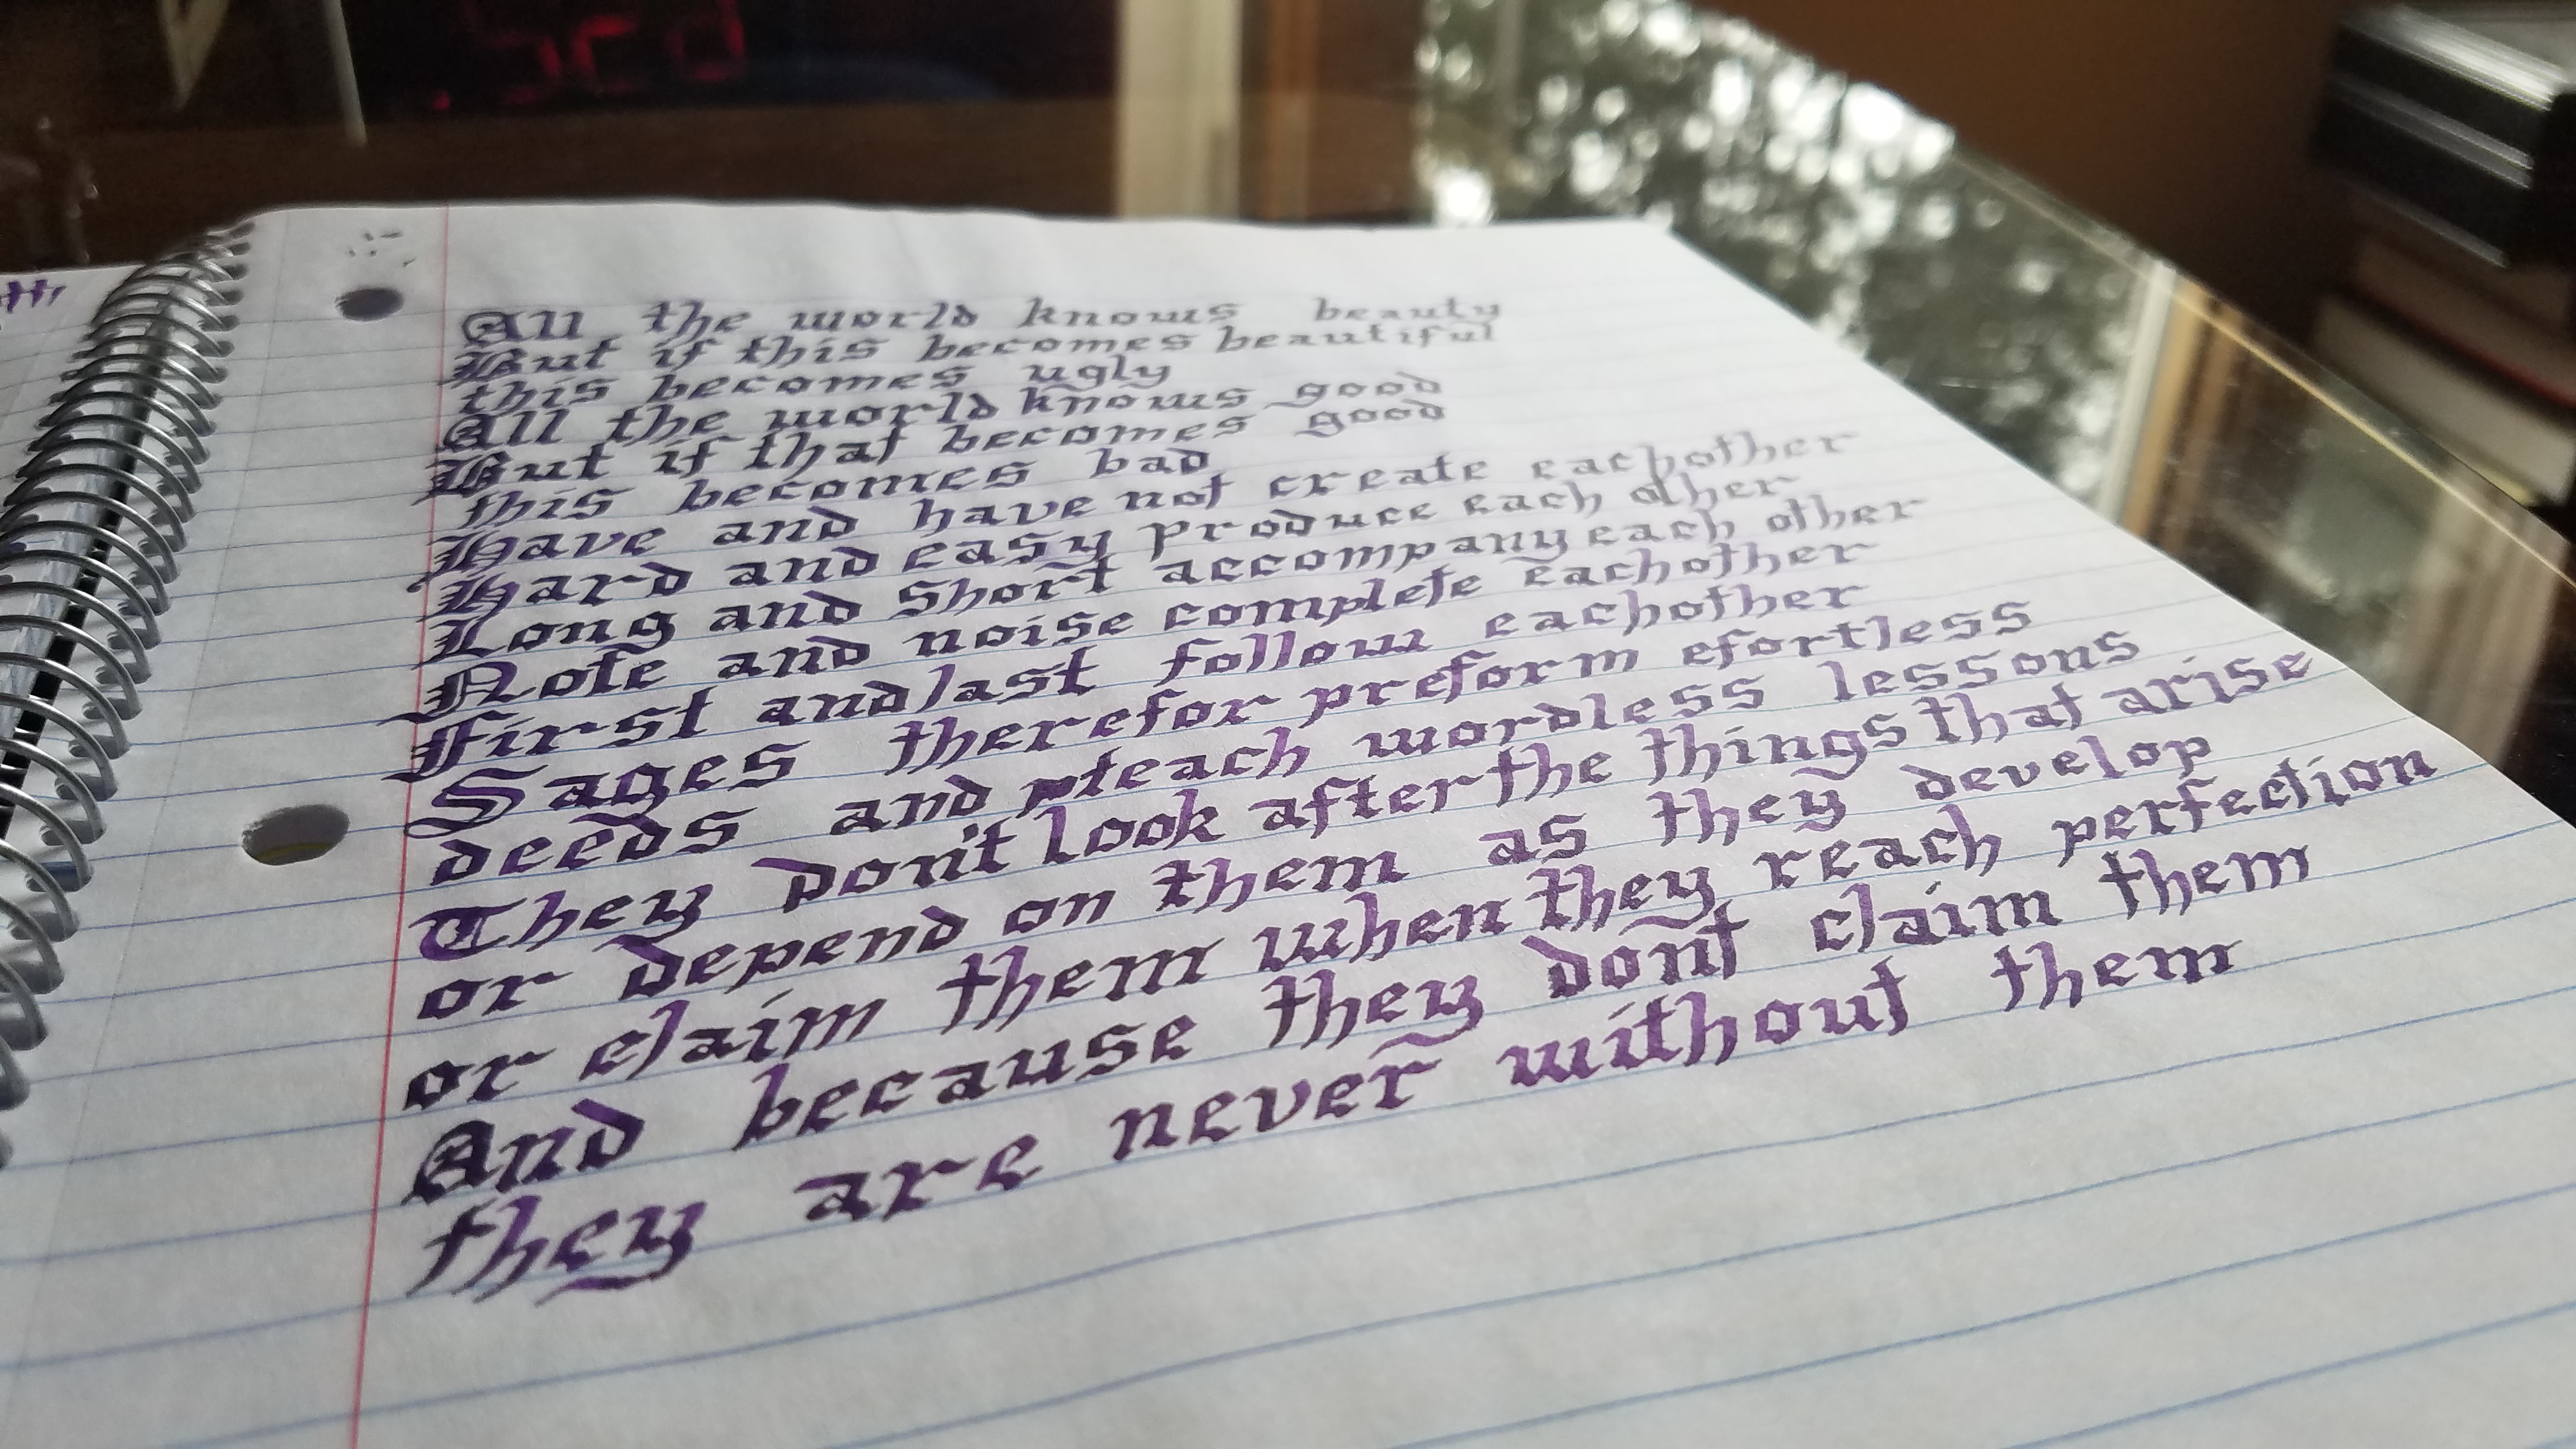 All the world knows beauty
But if this becomes beautiful
this becomes ugly
All the world knows good
But if that becomes good
this becomes bad
Have and have not create eachother
Hard and easy produce each other
Long and Short accompany each other
Note and noise complete eachother
First and last follow eachother
Sages therefor preform efortless
deeds and pteach wordless lessons
They don't look after the things that arise
or depend on them as they develop
or claim them when they reach perfection
And because they don't claim them
they are never without them